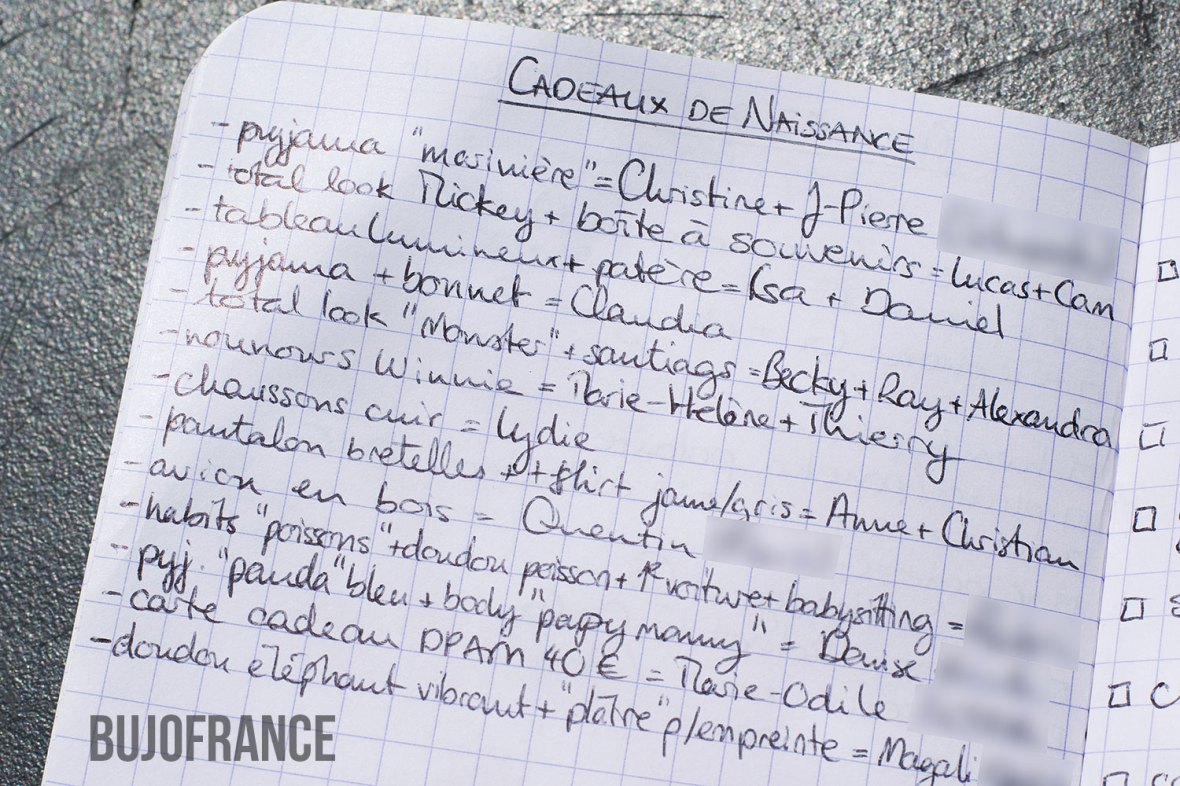 CADEAUX DE NAISSANCE
- pyjama "marinière" = Christine + J-Pierre
- total look Mickey + boîte à souvenirs = Lucas + Cam
- tableau lumineux + patère = Isa + Daniel
- pyjama + bonnet = Claudia
- total look "Monster" + santiags = Becky + Ray + Alexandra
- nounours Winnie = Marie-Hélène + Thierry
- chaussons cuir = Lydie
- pantalon bretelles + tshirt jaune/gris = Anne + Christian
- avion en bois = Quentin
- habits "poissons" + doudou poisson + 1re voiture + babysitting =
- pyj. "panda" bleu + body "papy mamy" = Denise
- carte cadeau DPAM 40€ = Marie-Odile
- doudou éléphant vibrant + "plâtre" p/empreinte = Magali
BUJOFRANCE